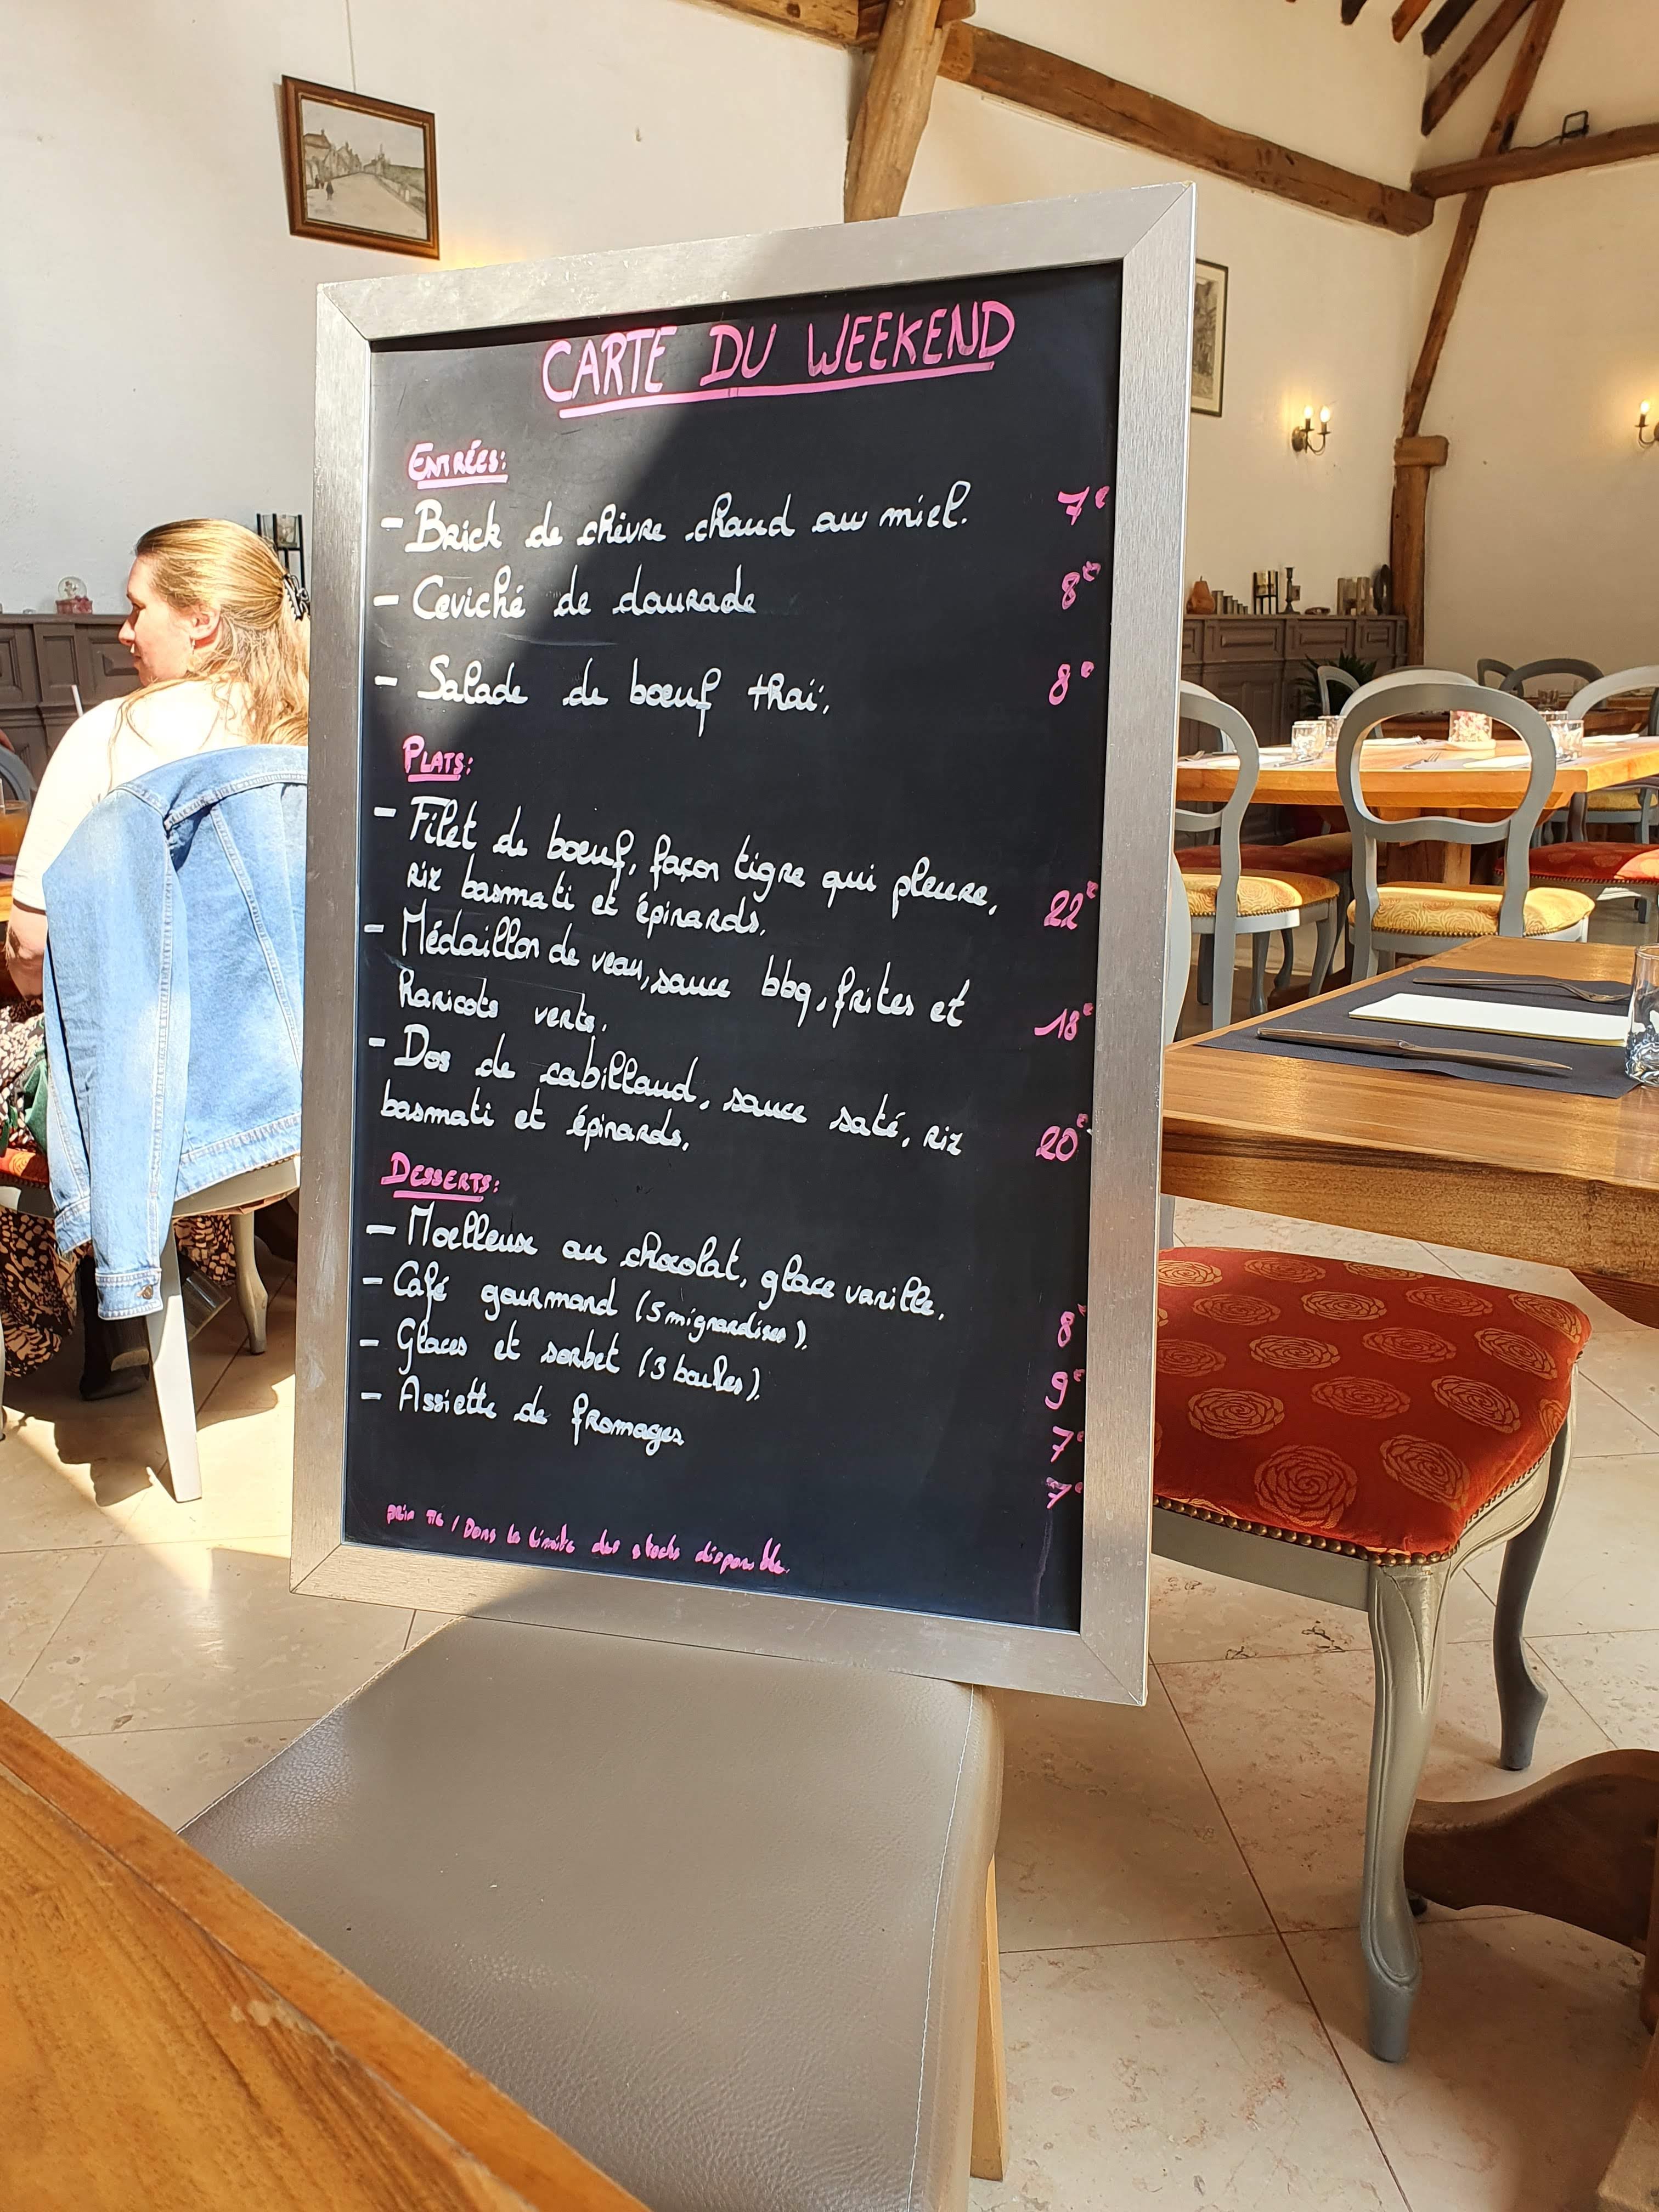 CARTE DU WEEKEND
ENTRÉES:
- Brick de chèvre chaud au miel. 7€
- Ceviché de daurade 8€
- Salade de boeuf thaï; 8€
PLATS:
- Filet de boeuf, façon tigre qui pleure,
riz basmati et épinards. 22€
- Médaillon de veau, sauce bbq, frites et
haricots verts. 18€
- Dos de cabillaud, sauce saté, riz
basmati et épinards. 20€
DESSERTS:
- Moelleux au chocolat, glace vanille. 8€
- Café gourmand (5 mignardises). 9€
- Glaces et sorbet (3 boules). 7€
- Assiette de fromages 7€
prix TTC / Dans la limite des stocks disponible.